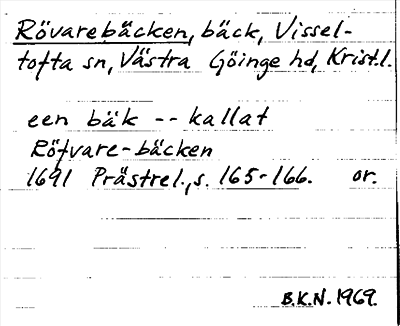 Rövarebäcken, bäck, Vissel-
tofta sn, Västra Göinge hd, Krist.l.
een bäk -- kallat
Röfvare-bäcken
1691 Prästrel., s. 165-166. or.
B.K.N. 1969.